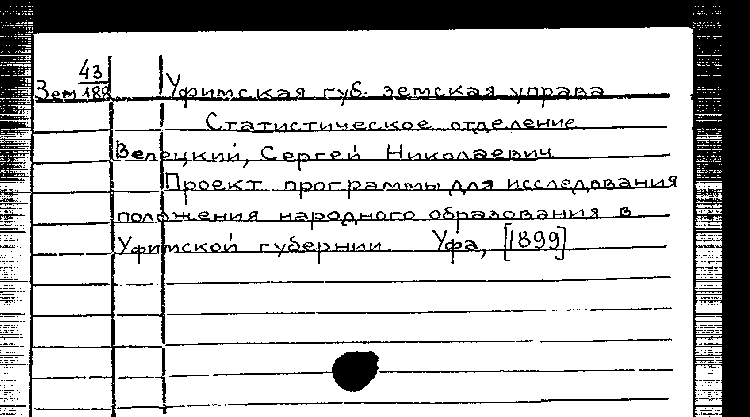 43
Зем 189 Уфимская губ. земская управа
Статистическое отделение
Велецкий, Сергей Николаевич
Проект программы для исследования
положения народного образования в
Уфимской губернии Уфа, [1899]